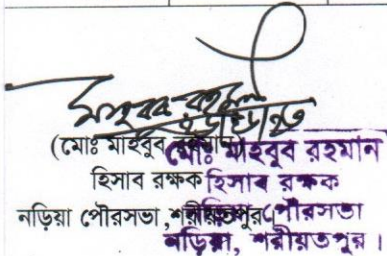 (মোঃ মাহবুব রহমান)
হিসাব রক্ষক
নড়িয়া পৌরসভা ,শরীয়তপুর।
মোঃ মাহবুব রহমান
হিসাব রক্ষক
নড়িয়া পৌরসভা
নড়িয়া, শরীয়তপুর ।